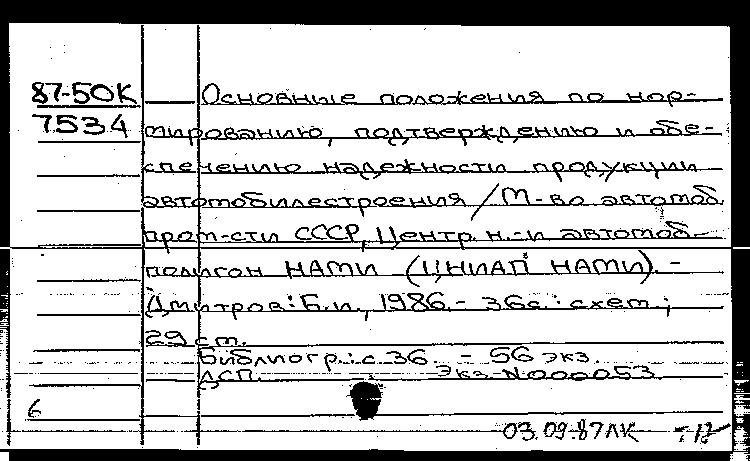 87-50К Основные положения по нор-
7534 мированию, подтверждению и обе-
спечению надежности продукции
автомобилестроения / М-во автомоб.
пром-сти СССР, Центр. н.-и автомоб-
полигон НАМИ (ЦНИАП НАМИ). -
Дмитров: Б.и., 1986. - 36с. : схем.;
29 см.
Библиогр.: с 36. - 56 экз.
ДСП. Экз. N000053.
6
03.09.87ЛК